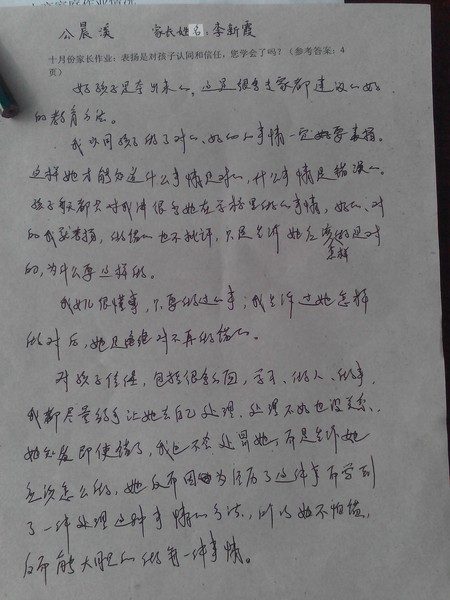 公晨溪 家长姓名:李新霞
十月份家长作业:表扬是对孩子认同和信任,您学会了吗?(参考答案:4
页)
好孩子是夸出来的,这是很多专家都建议的好
的教育方法。
我认同孩子做了对的、好的事情一定要表扬。
这样她才能知道什么事情是对的,什么事情是错误的。
孩子每天都会对我讲很多她在学校里做的事情,好的、对
的我就表扬,做错的也不批评,只是告诉她应该怎样做是对
的,为什么要这样做。
我女儿很懂事,只要做过的事,我告诉过她怎样
做对后,她是绝对不再做错的。
对孩子信任,包括很多方面,学习、做人、做事,
我都尽量放手让她去自己处理,处理不好也没关系,
她处理即使错了,我也不会处罚她,而是告诉她
应该怎么做,她反而因为经历了这件事而学到
了一种处理这种事情的方法,所以她不怕错,
反而能大胆的做每一件事情。